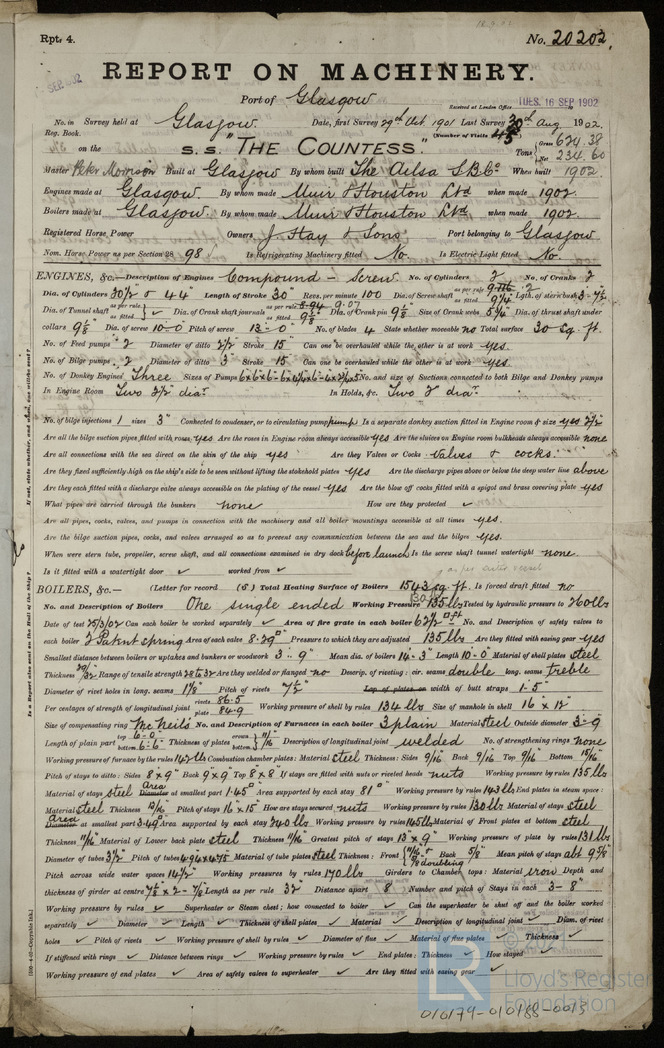 Rpt. 4.
No. 20202.
REPORT ON MACHINERY.
Port of Glasgow
Received at London Office TUES. 16 SEP 1902
No. in Survey held at Glasgow. Date, first Survey 29th Oct 1901 Last Survey 30th Aug 1902.
Reg. Book. (Number of Visits 45)
on the S.S. "THE COUNTESS." Tons Gross 624.38 Net 234.60
Master Peter Morrison Built at Glasgow By whom built The Ailsa S.B.Co When built 1902.
Engines made at Glasgow. By whom made Muir & Houston Ltd when made 1902.
Boilers made at Glasgow. By whom made Muir & Houston Ltd when made 1902.
Registered Horse Power Owners J. Hay & Sons Port belonging to Glasgow
Nom. Horse Power as per Section 28 98 Is Refrigerating Machinery fitted No Is Electric Light fitted No.
ENGINES, &c.—Description of Engines Compound – Screw No. of Cylinders 2 No. of Cranks 2
Dia. of Cylinders 20½ & 44" Length of Stroke 30" Revs. per minute 100 Dia. of Screw shaft as per rule as fitted 9¼" Lgth. of stern bush 3-7½
Dia. of Tunnel shaft as per rule as fitted ✓ Dia. of Crank shaft journals as per rule as fitted 9⅛" Dia. of Crank pin 9⅛" Size of Crank webs 5¾" Dia. of thrust shaft under
collars 9⅛" Dia. of screw 10-0 Pitch of screw 13-0" No. of blades 4 State whether moveable no Total surface 30 sq. ft.
No. of Feed pumps 2 Diameter of ditto 2½" Stroke 15" Can one be overhauled while the other is at work yes.
No. of Bilge pumps 2 Diameter of ditto 3" Stroke 15" Can one be overhauled while the other is at work yes.
No. of Donkey Engines Three Sizes of Pumps No. and size of Suctions connected to both Bilge and Donkey pumps
In Engine Room Two 2½ diar In Holds, &c. Two 2 diar
No. of bilge injections 1 sizes 3" Connected to condenser, or to circulating pump pump Is a separate donkey suction fitted in Engine room & size yes 2½
Are all the bilge suction pipes fitted with roses yes Are the roses in Engine room always accessible yes Are the sluices on Engine room bulkheads always accessible none
Are all connections with the sea direct on the skin of the ship yes Are they Valves or Cocks valves & cocks.
Are they fixed sufficiently high on the ship's side to be seen without lifting the stokehold plates yes Are the discharge pipes above or below the deep water line above
Are they each fitted with a discharge valve always accessible on the plating of the vessel yes Are the blow off cocks fitted with a spigot and brass covering plate yes
What pipes are carried through the bunkers none How are they protected ✓
Are all pipes, cocks, valves, and pumps in connection with the machinery and all boiler mountings accessible at all times yes.
Are the bilge suction pipes, cocks, and valves arranged so as to prevent any communication between the sea and the bilges yes.
When were stern tube, propeller, screw shaft, and all connections examined in dry dock before launch Is the screw shaft tunnel watertight none.
Is it fitted with a watertight door ✓ worked from ✓
BOILERS, &c.— (Letter for record (S) Total Heating Surface of Boilers 1543 sq. ft. Is forced draft fitted no
No. and Description of Boilers One single ended Working Pressure 135 lbs Tested by hydraulic pressure to 260 lbs
Date of test 25/3/02 Can each boiler be worked separately ✓ Area of fire grate in each boiler 62½ sq ft No. and Description of safety valves to
each boiler 2 Patent spring Area of each valve 8.29" Pressure to which they are adjusted 135 lbs Are they fitted with easing gear yes
Smallest distance between boilers or uptakes and bunkers or woodwork 3' 9" Mean dia. of boilers 14'-3" Length 10'-0 Material of shell plates steel
Thickness 29/32 Range of tensile strength 28 to 32 Are they welded or flanged no Descrip. of riveting: cir. seams double long. seams treble
Diameter of rivet holes in long. seams 1⅛" Pitch of rivets 7½" Lap of plates or width of butt straps 1-5"
Per centages of strength of longitudinal joint rivets 86.5 plate 84.9 Working pressure of shell by rules 134 lbs Size of manhole in shell 16" x 12"
Size of compensating ring McNeils No. and Description of Furnaces in each boiler 3 plain Material steel Outside diameter 3-9
Length of plain part top 6-0" bottom 6-6" Thickness of plates crown bottom 11/16" Description of longitudinal joint welded No. of strengthening rings none
Working pressure of furnace by the rules 147 lbs Combustion chamber plates: Material steel Thickness: Sides 9/16 Back 9/16 Top 9/16" Bottom 15/16"
Pitch of stays to ditto: Sides 8x9" Back 9x9 Top 8x8" If stays are fitted with nuts or riveted heads nuts Working pressure by rules 135 lbs
Material of stays steel Area Diameter at smallest part 1.45" Area supported by each stay 81" Working pressure by rules 143 lbs End plates in steam space:
Material steel Thickness 15/16" Pitch of stays 16x15" How are stays secured nuts Working pressure by rules 130 lbs Material of stays steel
Area Diameter at smallest part 3.49" Area supported by each stay 240 lbs Working pressure by rules 145 lbs Material of Front plates at bottom steel
Thickness 11/16" Material of Lower back plate steel Thickness 11/16" Greatest pitch of stays 13" x 9" Working pressure of plate by rules 131 lbs
Diameter of tubes 3½" Pitch of tubes 4.94x4.75 Material of tube plates steel Thickness: Front 11/16" & 5/8 doubling Back 5/8" Mean pitch of stays abt 9⅞"
Pitch across wide water spaces 14½" Working pressures by rules 170 lbs Girders to Chamber tops: Material iron Depth and
thickness of girder at centre 7⅞ x 2-⅞ Length as per rule 32" Distance apart 8" Number and pitch of Stays in each 3-8"
Working pressure by rules ✓ Superheater or Steam chest; how connected to boiler ✓ Can the superheater be shut off and the boiler worked
separately ✓ Diameter ✓ Length ✓ Thickness of shell plates ✓ Material ✓ Description of longitudinal joint ✓ Diam. of rivet
holes ✓ Pitch of rivets ✓ Working pressure of shell by rules ✓ Diameter of flue ✓ Material of flue plates ✓ Thickness ✓
If stiffened with rings ✓ Distance between rings ✓ Working pressure by rules ✓ End plates: Thickness ✓ How stayed ✓
Working pressure of end plates ✓ Area of safety valves to superheater ✓ Are they fitted with easing gear ✓
Lloyd's Register
Foundation
010179-010188-0013